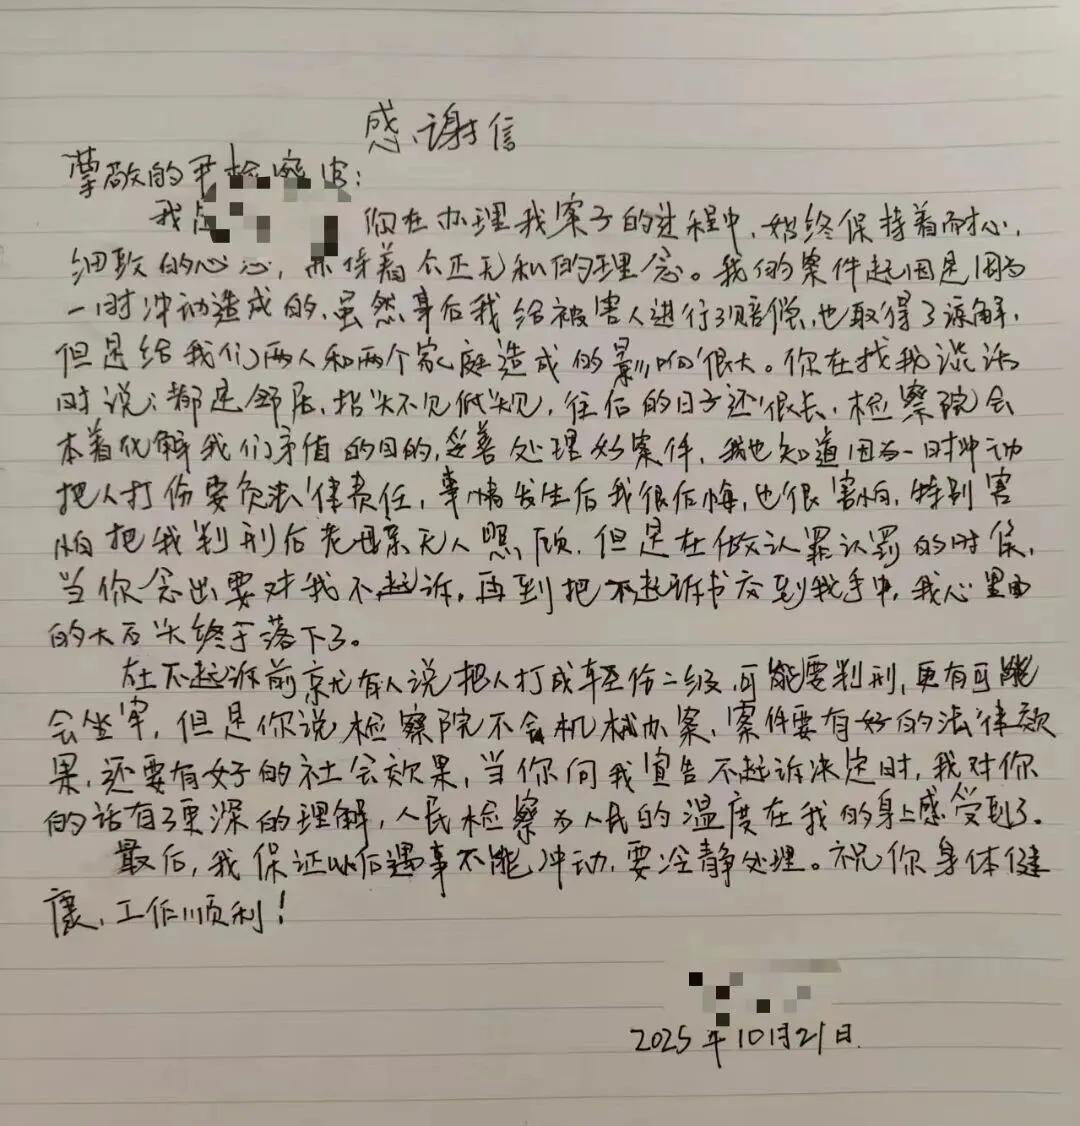 感谢信
尊敬的尹检察官：
我 你在办理我案子的过程中，始终保持着耐心，
细致的心态，秉持着公正无私的理念。我的案件起因是因为
一时冲动造成的，虽然事后我给被害人进行了赔偿，也取得了谅解，
但是给我们两人和两个家庭造成的影响很大。你在找我谈话
时说：都是邻居，抬头不见低头见，往后的日子还很长，检察院会
本着化解我们矛盾的目的，妥善处理好案件，我也知道因为一时冲动
把人打伤要负法律责任，事情发生后我很后悔，也很害怕，特别害
怕把我判刑后老母亲无人照顾，但是在做认罪认罚的时候，
当你念出要对我不起诉，再到把不起诉书交到我手中，我心里面
的大石头终于落下了。
在不起诉前就有人说把人打成轻伤二级，可能要判刑，更有可能
会坐牢，但是你说检察院不会机械办案，案件要有好的法律效
果，还要有好的社会效果，当你向我宣告不起诉决定时，我对你
的话有了更深的理解，人民检察为人民的温度在我的身上感受到了。
最后，我保证以后遇事不能冲动，要冷静处理。祝你身体健
康，工作顺利！
2025年10月21日